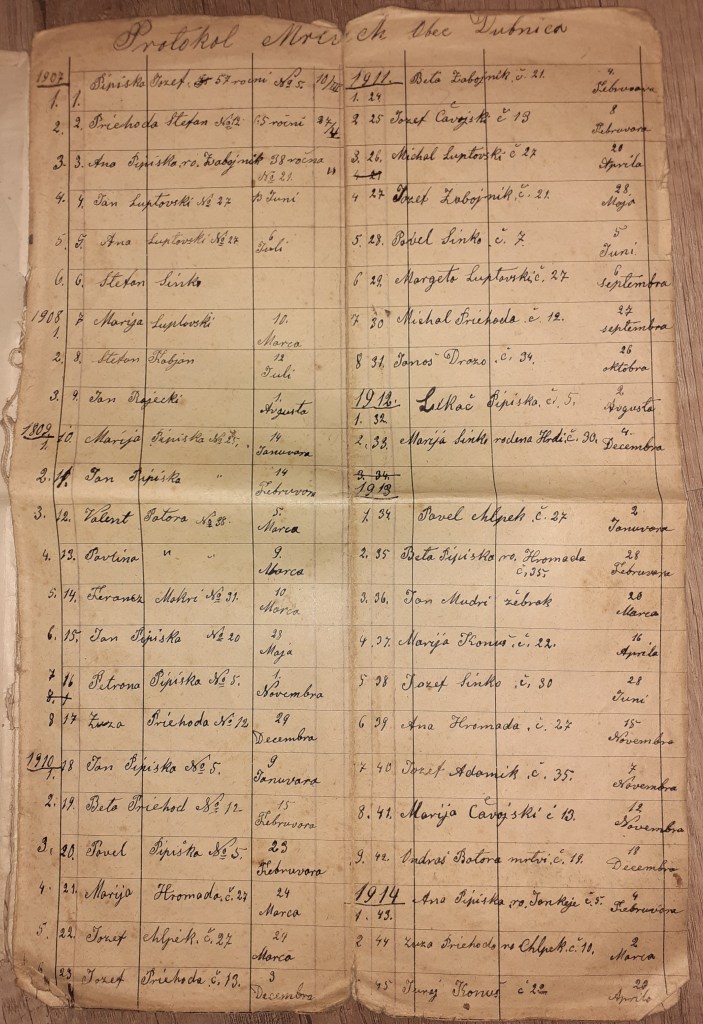 Protokol Mrtvich Obec Dubnica
1907
1. 1. Pipiska Jozef 57 ročni № 5. 10/III
2. 2. Priehoda Stefan № 12 65 ročni 27/4
3. 3. Ana Pipiska, ro. Zabojnik 38 ročna № 21. "
4. 4. Jan Luptovski № 27 13 Juni
5. 5. Ana Luptovski № 27 6 Juli
6. 6. Stefan Sinko
1908
1. 7 Marija Luptovski 10. Marca
2. 8. Stefan Kobjan 12 Juli
3. 9. Jan Rajecki 1. Avgusta
1809
1. 10. Marija Pipiska № 25. 14. Januvara
2. 11. Jan Pipiska " 14 Februvara
3. 12. Valent Potora № 38. 5. Marca
4. 13. Pavlina " " 9. Marca
5. 14. Ferancz Mokri № 31. 10. Marca
6. 15. Jan Pipiska № 20 23 Maja
7 16 Petrona Pipiska № 5. 1. Novembra
8. +
8 17 Zuza Priehoda № 12 29 Decembra
1910
1. 18 Jan Pipiska № 5. 9 Januvara
2. 19. Beta Priehod № 12 15 Februvara
3. 20. Pavel Pipiška № 5. 23 Februvara
4. 21. Marija Hromada. č. 27 24 Marca
5. 22. Jozef Chlpek. č. 27 24 Marca
23 Jozef Priehoda. č. 13. 3 Decembra
1911.
1. 24 Beta Zabojnik. č. 21. 4. Februvara
2 25 Jozef Čavojski č 13 8 Februvara
3. 26. Michal Luptovski č 27 20 Aprila
4 27
4 27 Jozef Zabojnik. č. 21. 28 Maja
5. 28. Pavel Sinko. č. 7. 5 Juni
6 29. Margeta Luptovski č. 27 6 septembra
7 30 Michal Priehoda. č. 12. 27 septembra
8 31. Janoš Drozo. č. 34. 26 oktobra
1912.
1. 32 Pipiska. č. 5. 2 Avgusta
2. 33. Marija Sinko rodena Hrdi č. 30. 4. Decembra
3. 34.
1913
1. 34 Pavel Chlpek. č. 27 2 Januvara
2. 35 Beta Pipiska ro. Hromada č. 35. 28 Februvara
3. 36. Jan Mudri žebrak 20 Marca
4. 37. Marija Konuš. č. 22. 16 Aprila
5 38 Jozef Sinko. č. 30 28 Juni
6 39 Ana Hromada. č. 27 15 Novembra
7 40 Jozef Adamik. č. 35. 7 Novembra
8. 41. Marija Čavojski č 13. 12 Novembra
9. 42. Ondraš Botora mrtvi. č. 19. 18 Decembra
1914
1. 43. Ana Pipiska, ro. č. 5. 4 Februvara
2 44 Zuza Priehoda ro Chlpek. č. 10. 2 Marca
45 Juraj Konuš č 22 29 Aprila